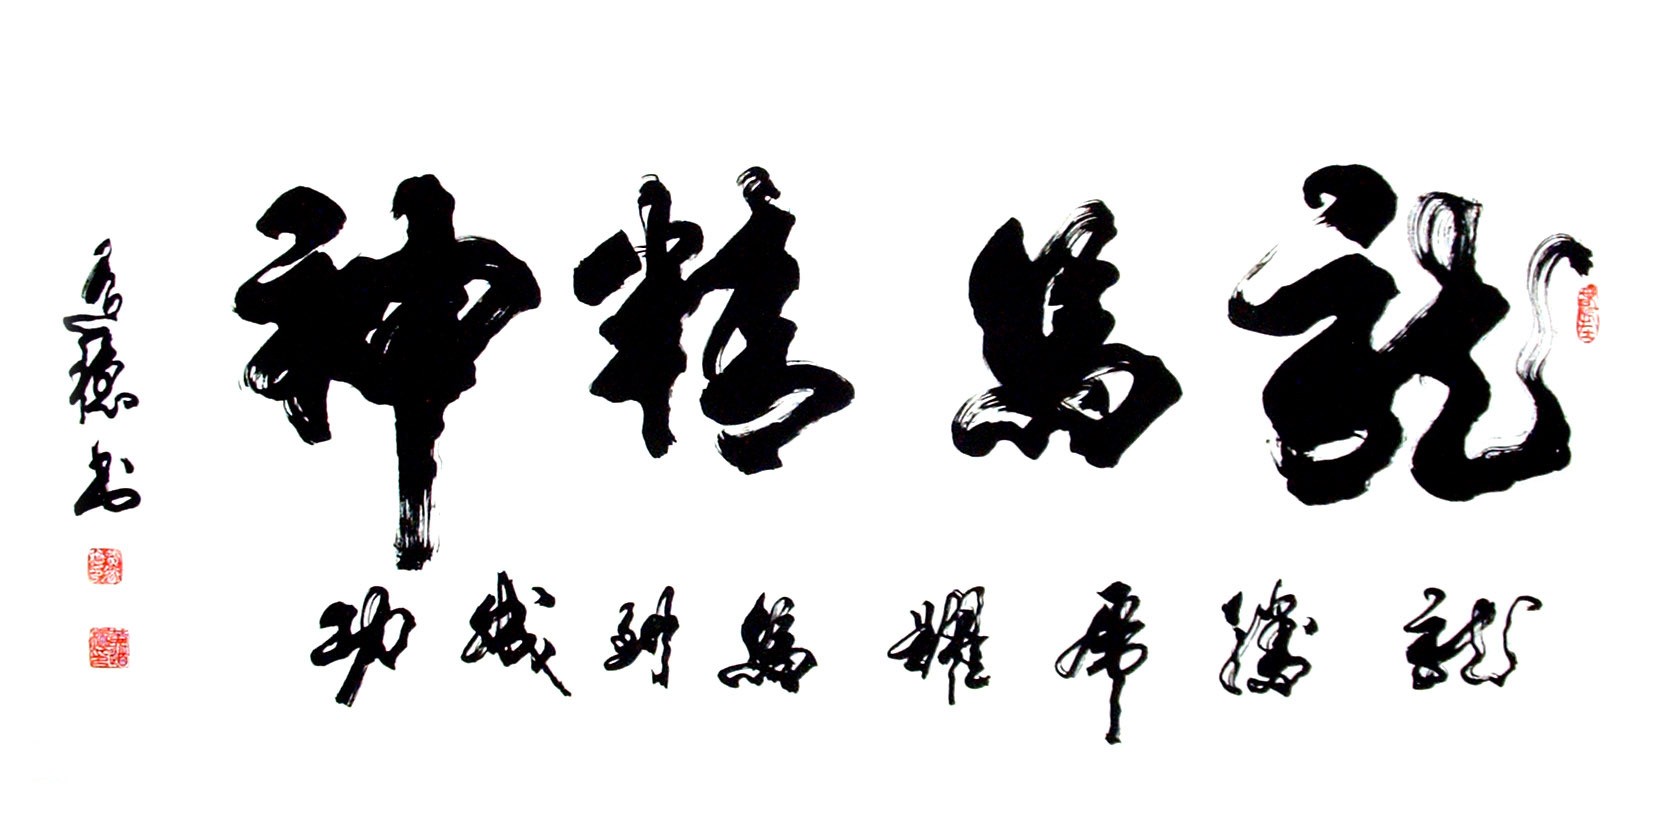 龍馬精神
龍騰虎躍馬到成功
道德書